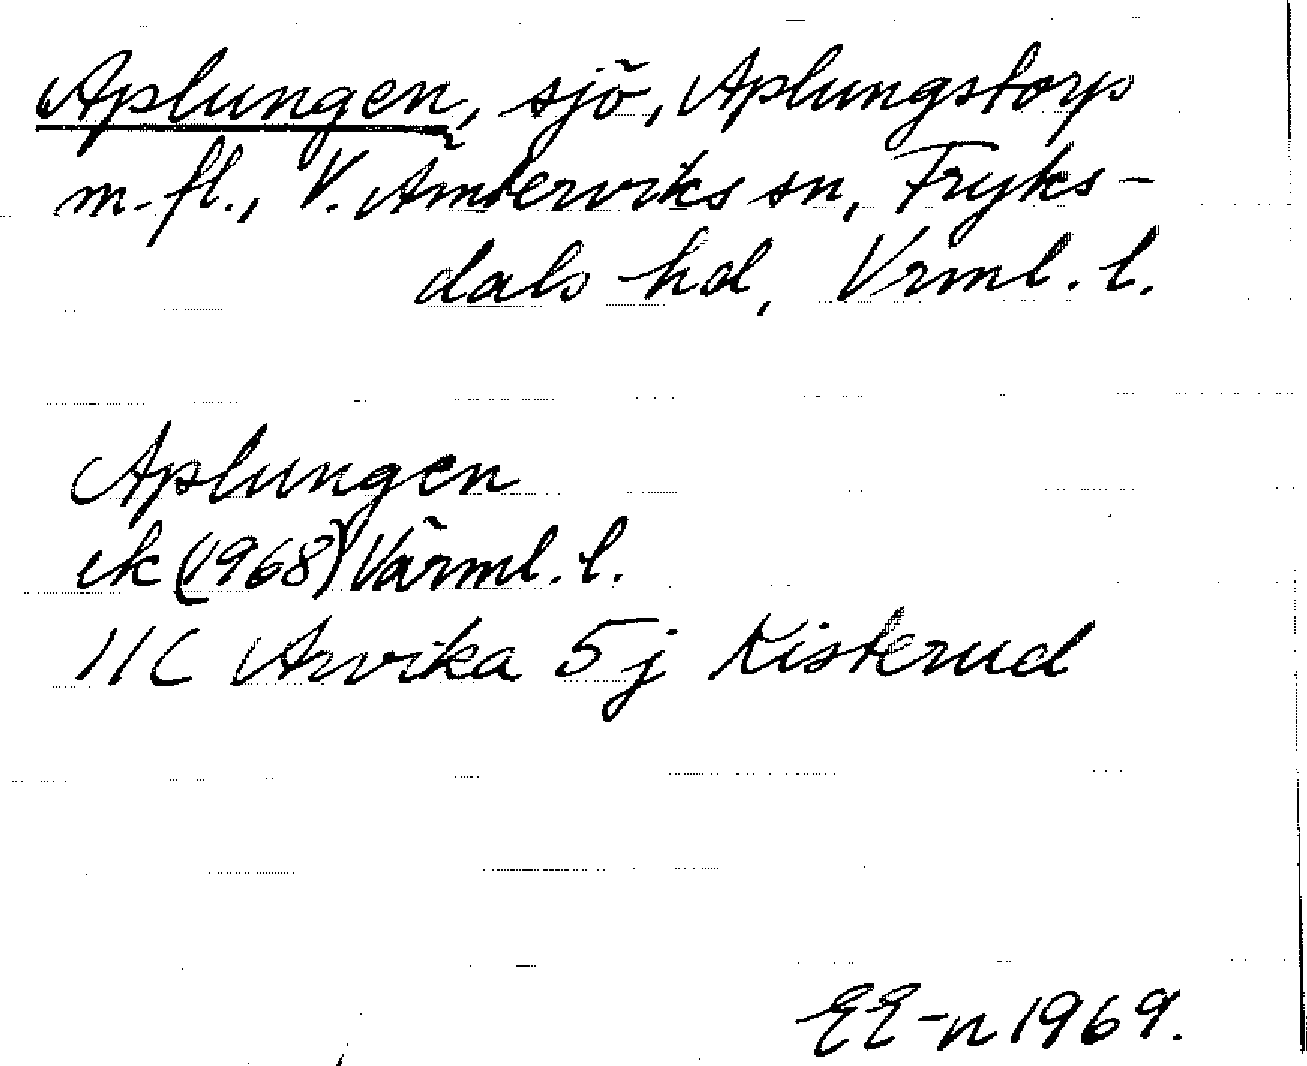 Aplungen, sjö, Aplungstorp
m. fl., V. Ämterviks sn, Fryks-
dals hd, Vrml. l.
Aplungen
ek (1968) Värml. l.
11C Arvika 5j Kisterud
EE-n 1969.